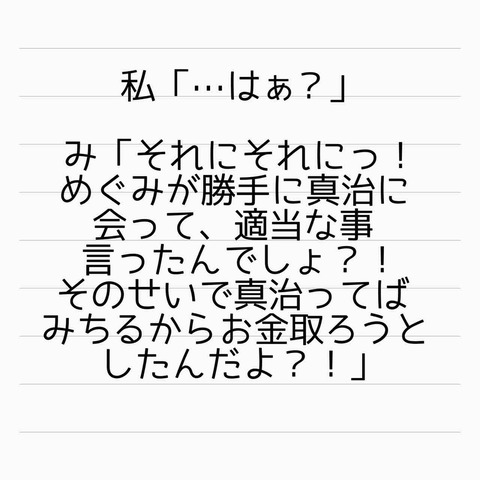 私「…はぁ？」
み「それにそれにっ！
めぐみが勝手に真治に
会って、適当な事
言ったんでしょ？！
そのせいで真治ってば
みちるからお金取ろうと
したんだよ？！」